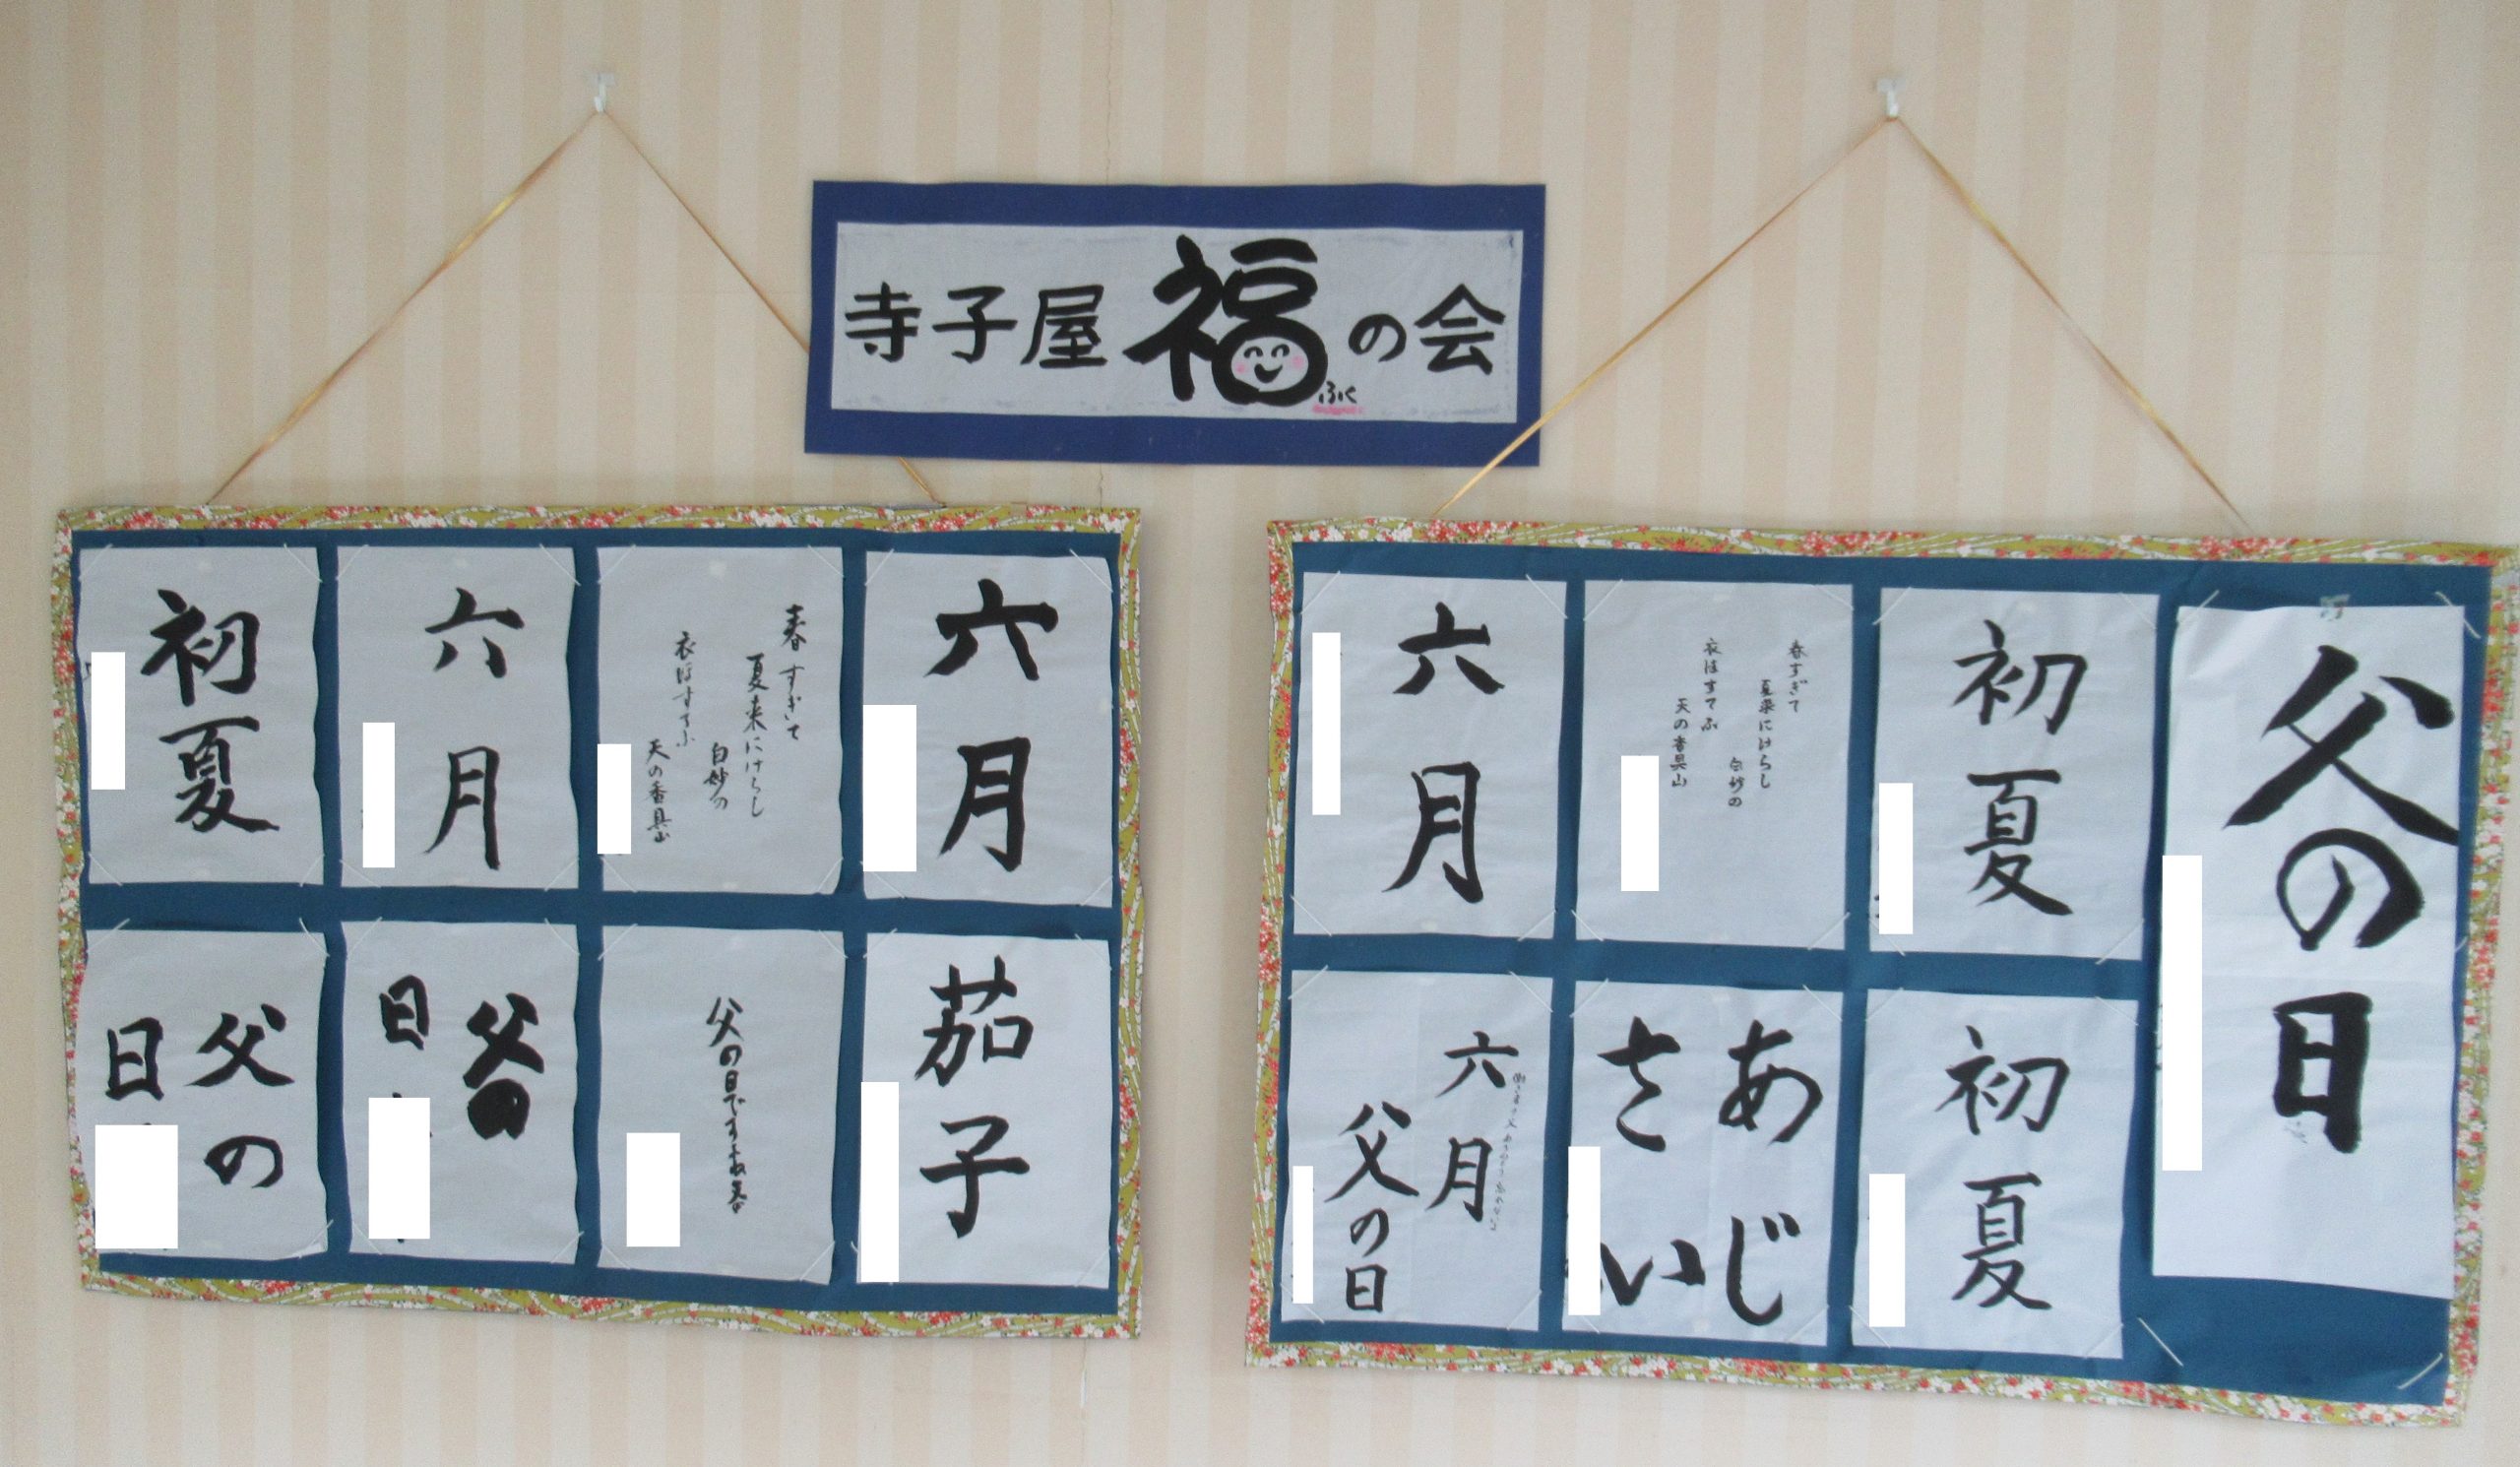 寺子屋福の会
ふく
父の日
初夏
春すぎて
夏来にけらし
白妙の
衣ほすてふ
天の香具山
六月
初夏
あじ
さい
六月
父の日
六月
春すぎて
夏来にけらし
白妙の
衣ほすてふ
天の香具山
六月
初夏
茄子
父の日ですね
父の
日
父の
日